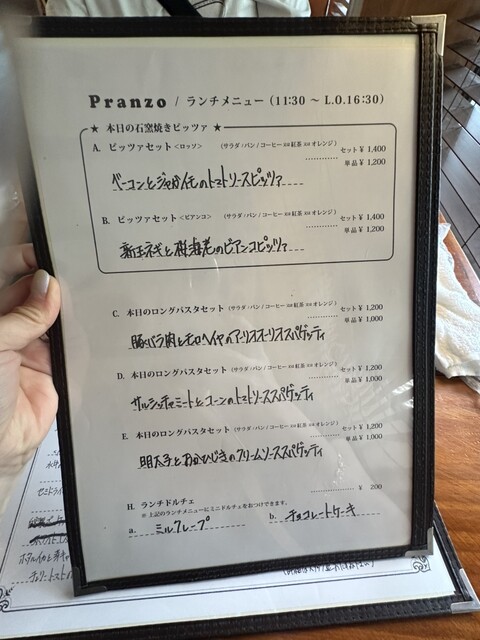 Pranzo / ランチメニュー (11:30 ～ L.O.16:30)
★ 本日の石窯焼きピッツァ ★
A. ピッツァセット <ロッソ> (サラダ / パン / コーヒー or 紅茶 or オレンジ) セット ¥ 1,400
............ 単品 ¥ 1,200
ベーコンとジャガイモのトマトソースピッツァ
B. ピッツァセット <ビアンコ> (サラダ / パン / コーヒー or 紅茶 or オレンジ) セット ¥ 1,400
............ 単品 ¥ 1,200
新玉ネギと桜海老のビアンコピッツァ
C. 本日のロングパスタセット (サラダ / パン / コーヒー or 紅茶 or オレンジ) セット ¥ 1,200
............ 単品 ¥ 1,000
豚バラ肉とモロヘイヤのアーリオオーリオスパゲッティ
D. 本日のロングパスタセット (サラダ / パン / コーヒー or 紅茶 or オレンジ) セット ¥ 1,200
............ 単品 ¥ 1,000
サルシッチャミートとコーンのトマトソーススパゲッティ
E. 本日のロングパスタセット (サラダ / パン / コーヒー or 紅茶 or オレンジ) セット ¥ 1,200
............ 単品 ¥ 1,000
明太子とめかひじきのクリームソーススパゲッティ
H. ランチドルチェ ............ ¥ 200
※ 上記のランチメニューにミニドルチェをおつけできます。
a. ミルクレープ b. チョコレートケーキ